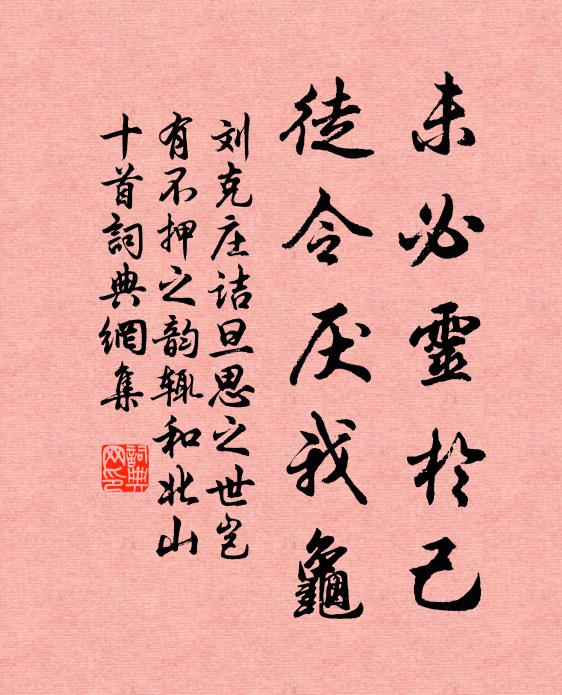 未必靈於己
徒令厌我龜
刘克庄诘旦思之世岂
有不押之韵辄和北山
十首詞典網集
詞典网印